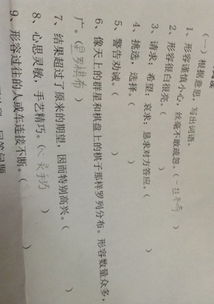 (一) 根据意思,写出词语。
1、形容谨慎小心,丝毫不敢疏忽。( )
2、形容很白很亮。( )
3、请求;希望,哀求;恳求对方答应。( )
4、挑选,选择。( )
5、警告劝诫。( )
6、像天上的群星和棋盘上的棋子那样罗列分布。形容数量众多,
广。(星罗棋布)
7、结果超过了原来的期望,因而特别高兴。( )
8、心思灵敏,手艺精巧。(心灵手巧)
9、形容过往的人或车连接不断。( )